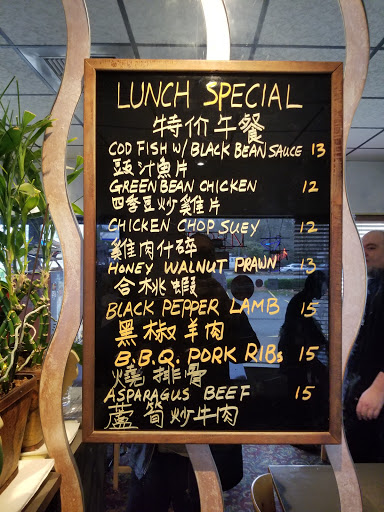 LUNCH SPECIAL
特价午餐
COD FISH W/ BLACK BEAN SAUCE 13
豉汁魚片
GREEN BEAN CHICKEN 12
四季豆炒雞片
CHICKEN CHOP SUEY 12
雞肉什碎
HONEY WALNUT PRAWN 13
合桃蝦
BLACK PEPPER LAMB 15
黑椒羊肉
B.B.Q. PORK RIBs 15
燒排骨
ASPARAGUS BEEF 15
蘆筍炒牛肉